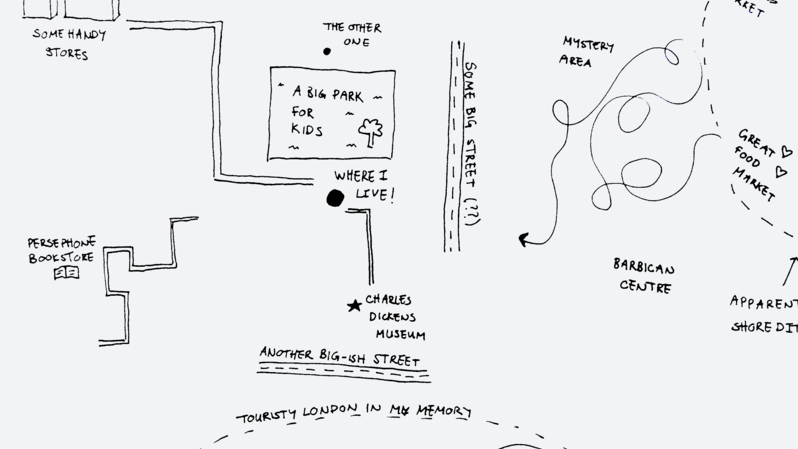 SOME HANDY
STORES
THE OTHER
ONE
A BIG PARK
FOR
KIDS
WHERE I
LIVE!
SOME BIG STREET (??)
MYSTERY
AREA
GREAT
FOOD
MARKET
PERSEPHONE
BOOKSTORE
BARBICAN
CENTRE
CHARLES
DICKENS
MUSEUM
APPARENT
SHOREDIT
ANOTHER BIG-ISH STREET
TOURISTY LONDON IN MY MEMORY